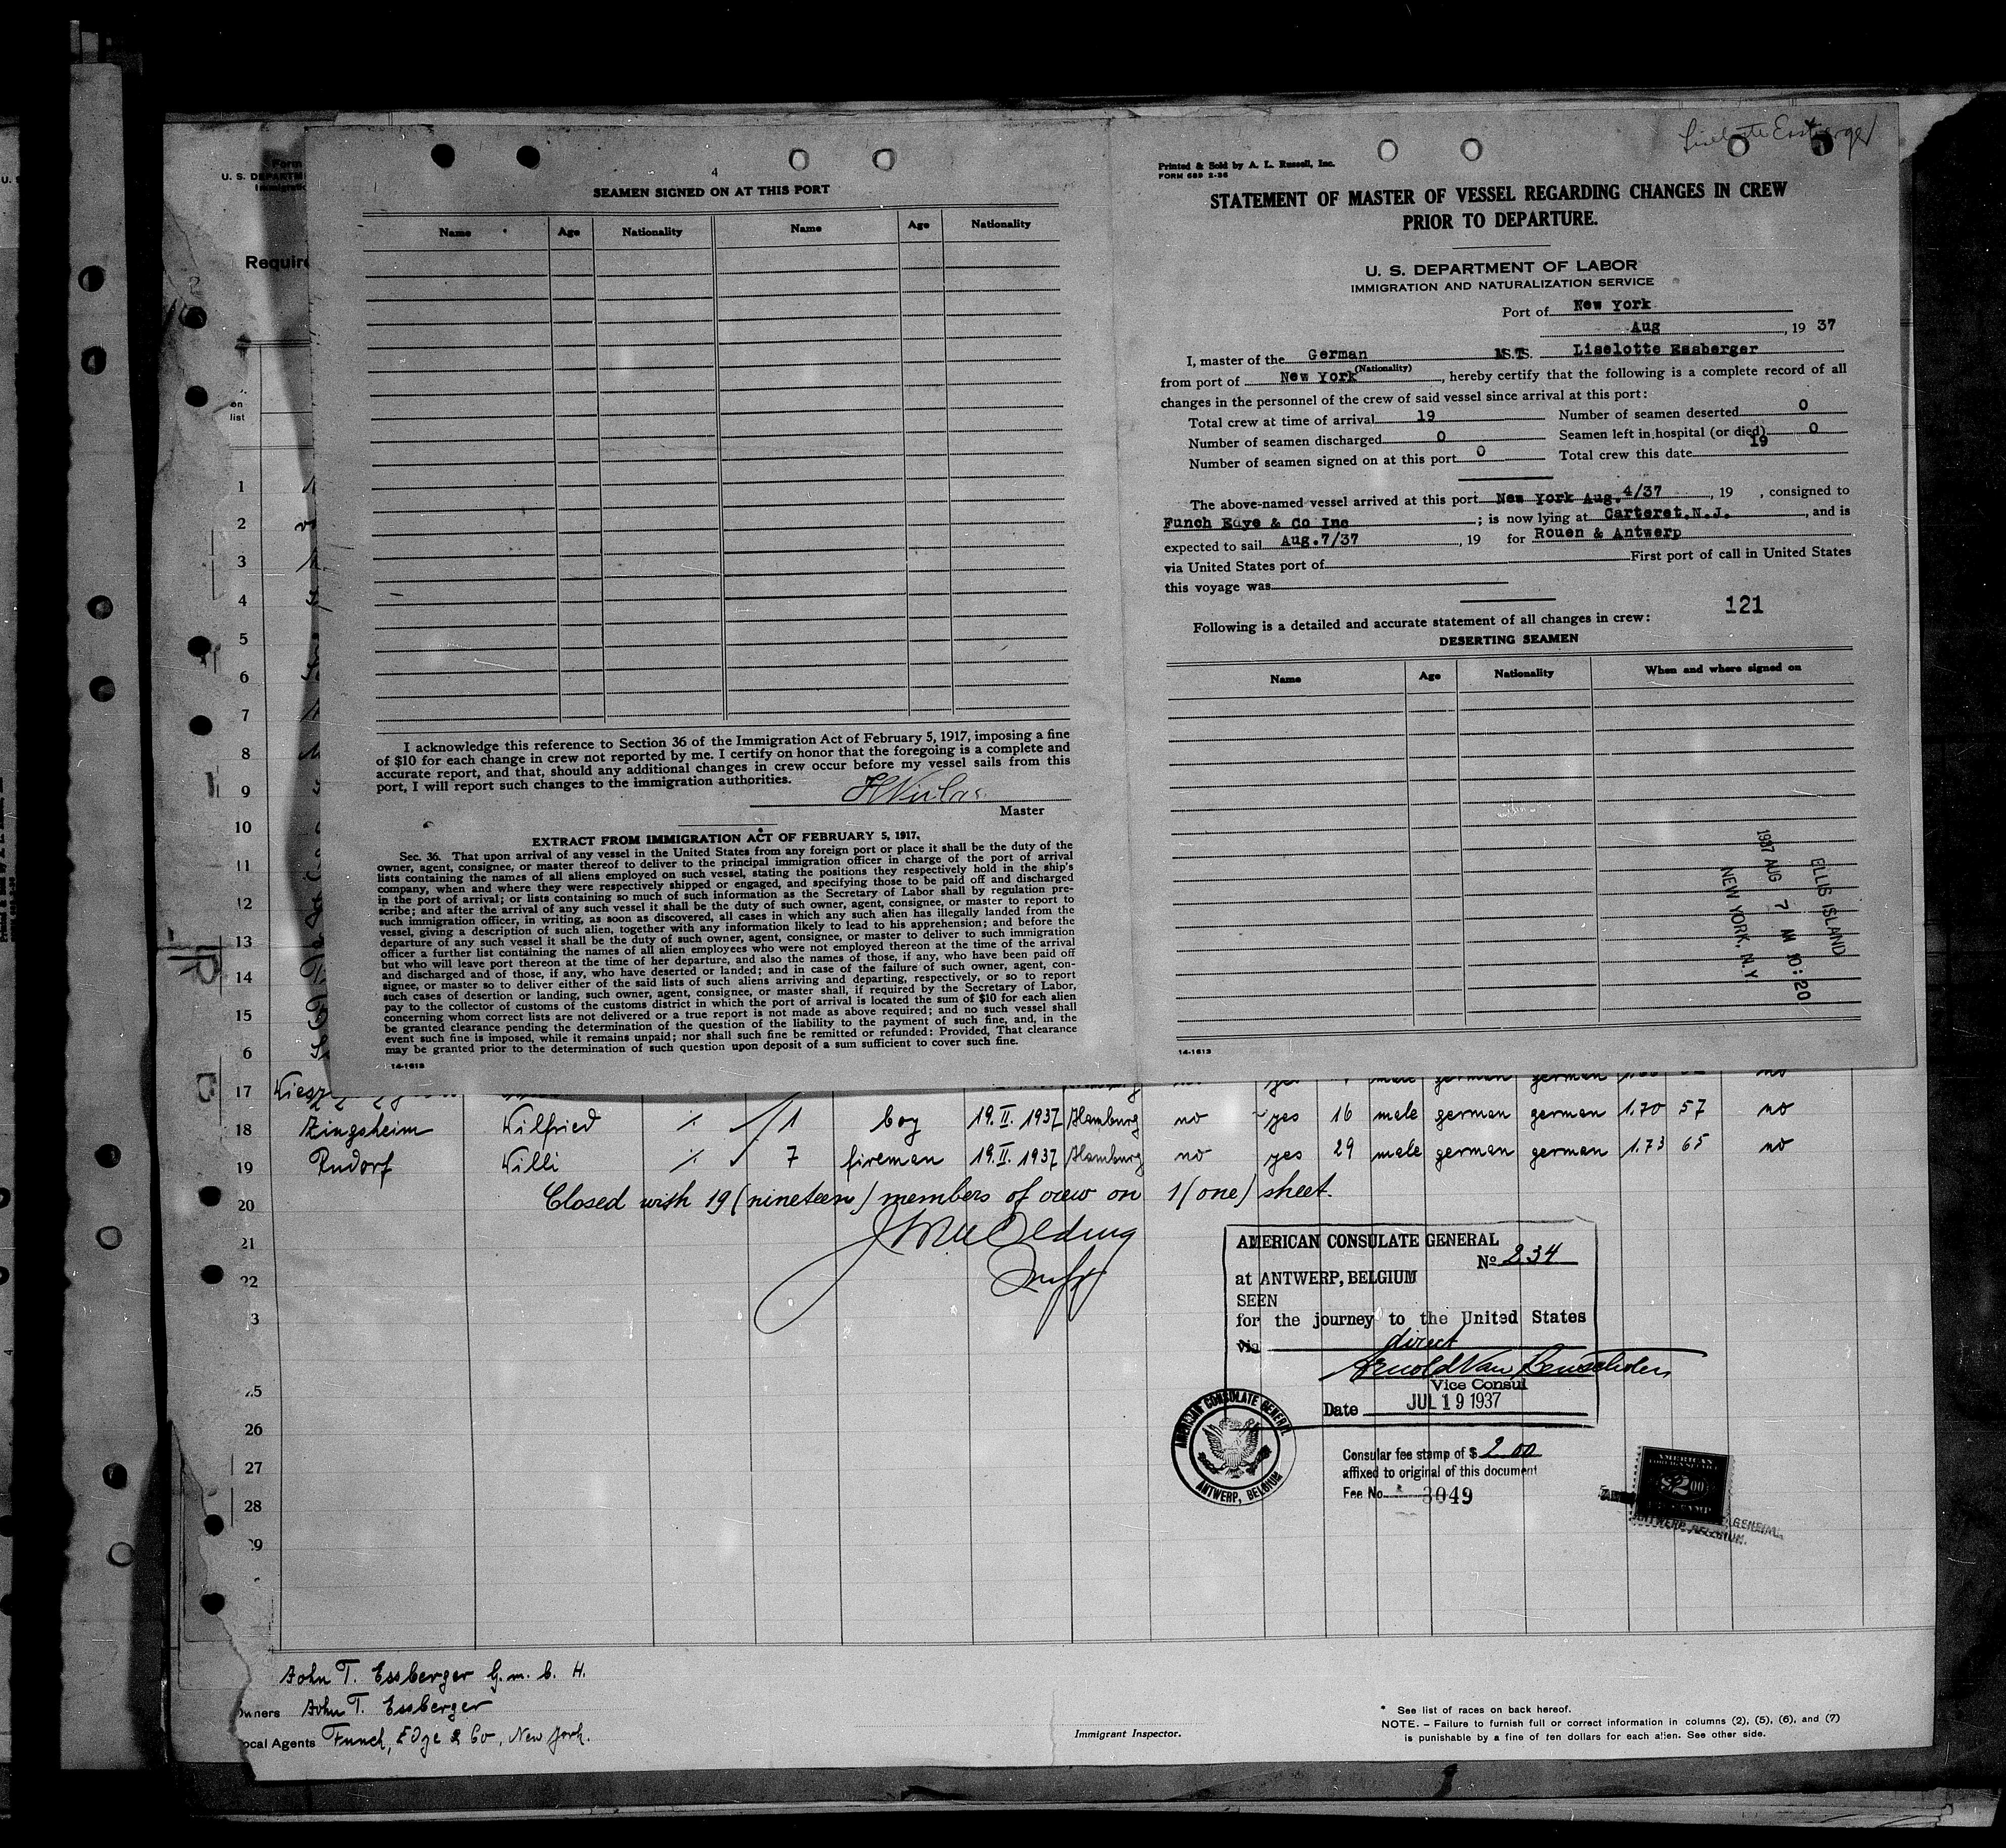 Liselotte Essberger
4
SEAMEN SIGNED ON AT THIS PORT
Name Age Nationality Name Age Nationality
I acknowledge this reference to Section 36 of the Immigration Act of February 5, 1917, imposing a fine
of $10 for each change in crew not reported by me. I certify on honor that the foregoing is a complete and
accurate report, and that, should any additional changes in crew occur before my vessel sails from this
port, I will report such changes to the immigration authorities.
Master
EXTRACT FROM IMMIGRATION ACT OF FEBRUARY 5, 1917.
Sec. 36. That upon arrival of any vessel in the United States from any foreign port or place it shall be the duty of the
owner, agent, consignee, or master thereof to deliver to the principal immigration officer in charge of the port of arrival
lists containing the names of all aliens employed on such vessel, stating the positions they respectively hold in the ship's
company, when and where they were respectively shipped or engaged, and specifying those to be paid off and discharged
in the port of arrival; or lists containing so much of such information as the Secretary of Labor shall by regulation pre-
scribe; and after the arrival of any such vessel it shall be the duty of such owner, agent, consignee, or master to report to
such immigration officer, in writing, as soon as discovered, all cases in which any such alien has illegally landed from the
vessel, giving a description of such alien, together with any information likely to lead to his apprehension; and before the
departure of any such vessel it shall be the duty of such owner, agent, consignee, or master to deliver to such immigration
officer a further list containing the names of all alien employees who were not employed thereon at the time of the arrival
but who will leave port thereon at the time of her departure, and also the names of those, if any, who have been paid off
and discharged and of those, if any, who have deserted or landed; and in case of the failure of such owner, agent, con-
signee, or master so to deliver either of the said lists of such aliens arriving and departing, respectively, or so to report
such cases of desertion or landing, such owner, agent, consignee, or master shall, if required by the Secretary of Labor,
pay to the collector of customs of the customs district in which the port of arrival is located the sum of $10 for each alien
concerning whom correct lists are not delivered or a true report is not made as above required; and no such vessel shall
be granted clearance pending the determination of the question of the liability to the payment of such fine, and, in the
event such fine is imposed, while it remains unpaid; nor shall such fine be remitted or refunded: Provided, That clearance
may be granted prior to the determination of such question upon deposit of a sum sufficient to cover such fine.
14-1613
Printed & Sold by A. L. Russell, Inc.
FORM 689 2-36
STATEMENT OF MASTER OF VESSEL REGARDING CHANGES IN CREW
PRIOR TO DEPARTURE.
U. S. DEPARTMENT OF LABOR
IMMIGRATION AND NATURALIZATION SERVICE
Port of New York
Aug , 19 37
I, master of the German M.S.TS. Liselotte Essberger
(Nationality)
from port of New York, hereby certify that the following is a complete record of all
changes in the personnel of the crew of said vessel since arrival at this port:
Total crew at time of arrival 19 Number of seamen deserted 0
Number of seamen discharged 0 Seamen left in hospital (or died) 0
Number of seamen signed on at this port 0 Total crew this date 19
The above-named vessel arrived at this port New York Aug. 4/37, 19 , consigned to
Funch Edye & Co Inc ; is now lying at Carteret.N.J., and is
expected to sail Aug.7/37, 19 for Rouen & Antwerp
via United States port of First port of call in United States
this voyage was
121
Following is a detailed and accurate statement of all changes in crew:
DESERTING SEAMEN
Name Age Nationality When and where signed on
ELLIS ISLAND
1937 AUG 7 AM 10:20
NEW YORK, N.Y.
14-1613
Form
U. S. DEPARTM
Immigratio
Require
on
list
1
2
3
4
5
6
7
8
9
10
11
12
13
14
15
6
17
18 Zingsheim Wilfried ٪ 1 boy 19.II.1937 Hamburg no yes 16 male german german 1.70 57 no
19 Rudorf Willi ٪ 7 fireman 19.II.1937 Hamburg no yes 29 male german german 1.73 65 no
20 Closed with 19 (nineteen) members of crew on 1 (one) sheet.
21
22
3
25
26
27
28
29
AMERICAN CONSULATE GENERAL
No 234
at ANTWERP, BELGIUM
SEEN
for the journey to the United States
via direct
Arnold Van Benschoten
Vice Consul
Date JUL 19 1937
AMERICAN CONSULATE GENERAL
ANTWERP, BELGIUM
Consular fee stamp of $ 2.00
affixed to original of this document
Fee No. 3049
AMERICAN
$2.00
ANTWERP, BELGIUM.
John T. Essberger G.m.b.H.
wners John T. Essberger
ocal Agents Funch, Edye & Co, New York.
Immigrant Inspector.
* See list of races on back hereof.
NOTE. – Failure to furnish full or correct information in columns (2), (5), (6), and (7)
is punishable by a fine of ten dollars for each alien. See other side.